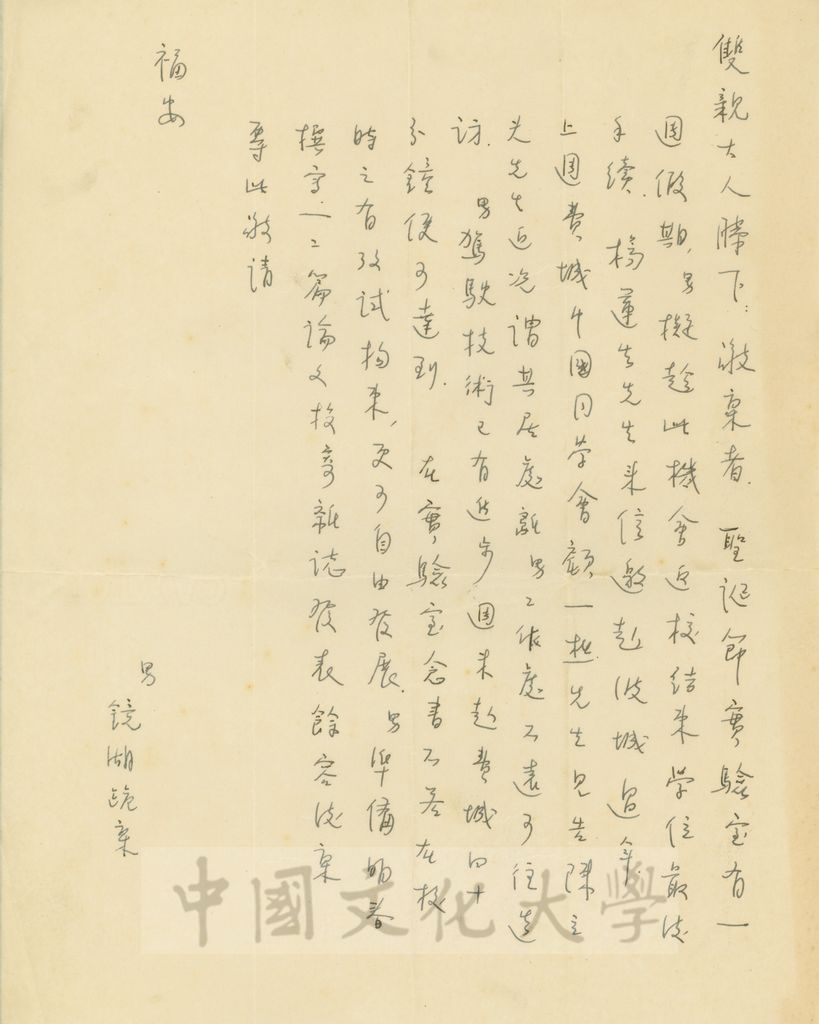 雙親大人膝下：敬稟者．聖誕節實驗室有一
週假期，男擬趁此機會返校結束學位最後
手續．楊蓮生先生來信邀赴波城過年
上週費城中國同學會顧一樵先生見告陳立
夫先生近況謂其居處離男工作處不遠可往造
訪．男駕駛技術已有進步週末赴費城四十
分鐘便可達到．在實驗室念書不若在校
時之有考試拘束，更可自由發展．男準備明春
撰寫一二篇論文投寄雜誌發表餘容後稟
專此敬請
福安
男
鏡湖跪稟
中國文化大學